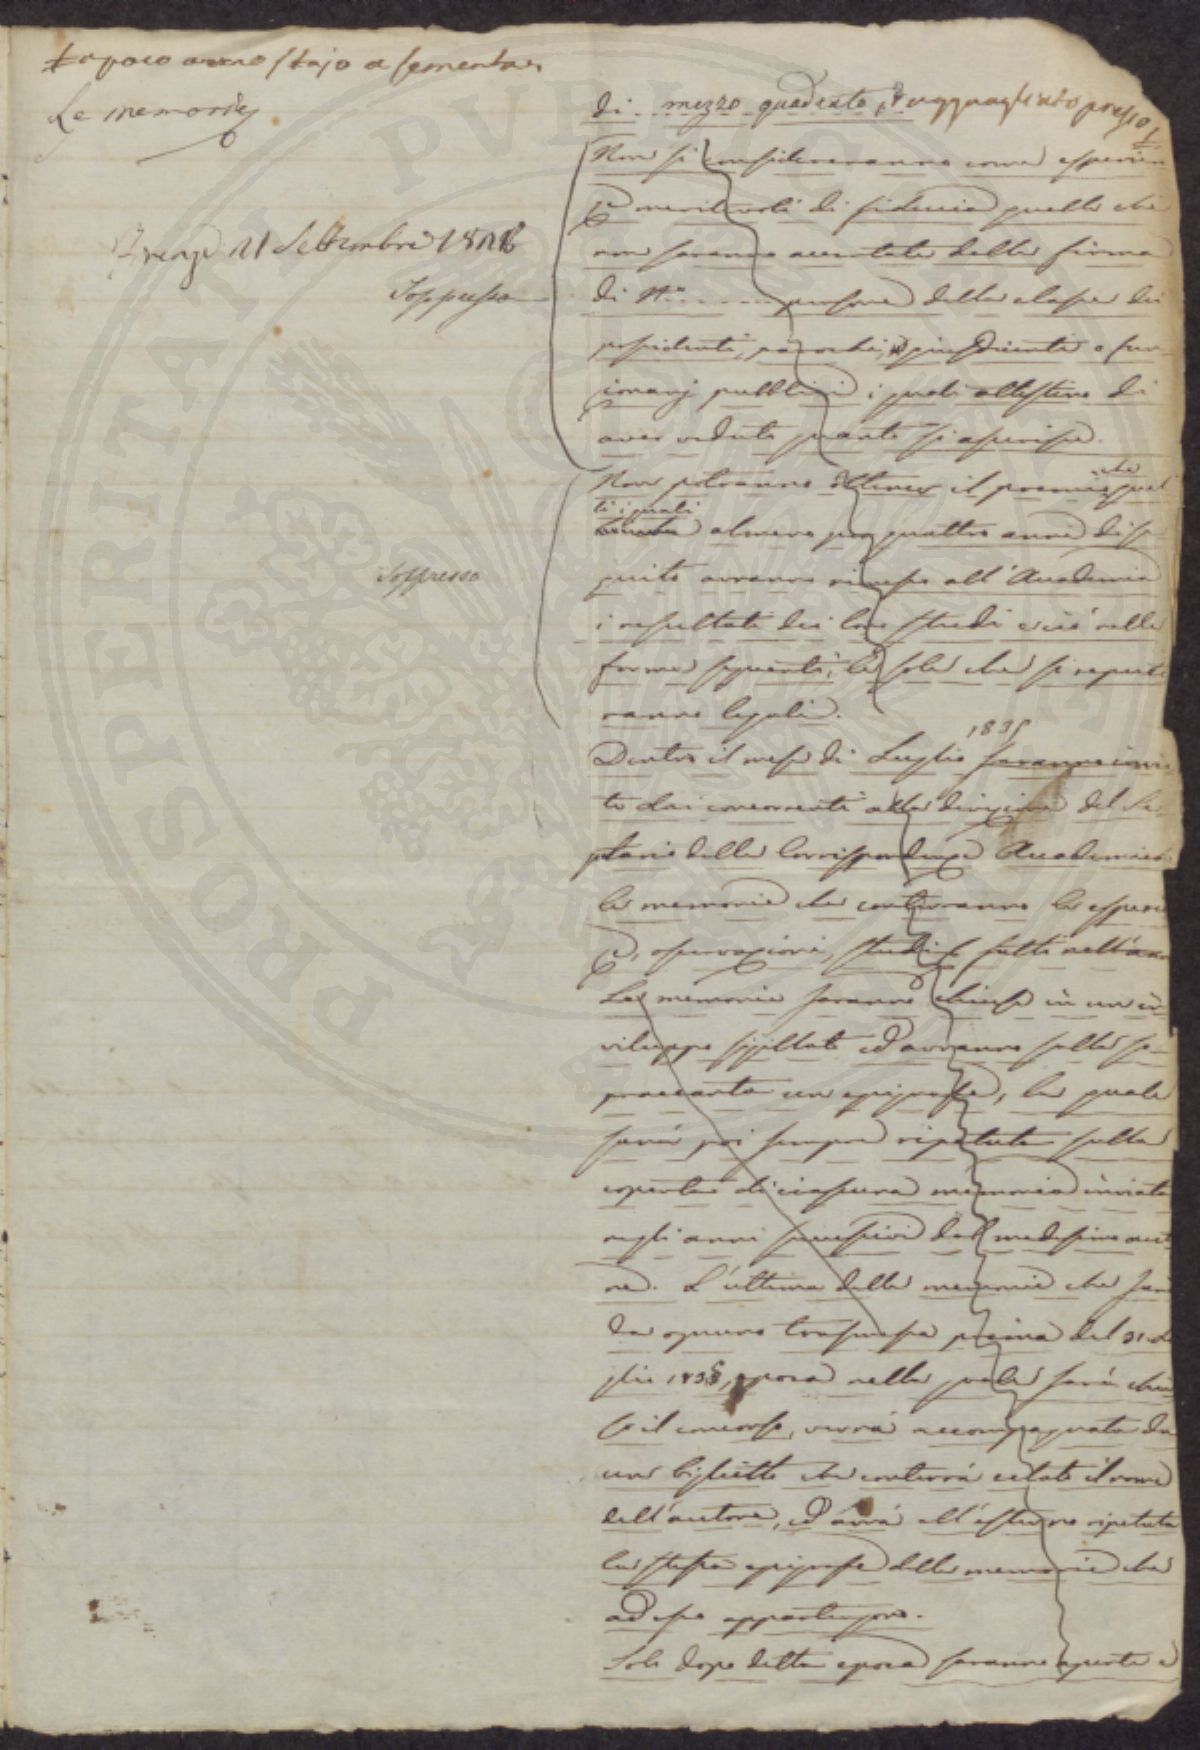 a poco meno stajo a sementa
Le memorie
Firenze 11 Settembre
Soppresso
Soppresso
di mezzo quadrato, ragguagliato presso
Non si considereranno come esperien
ze meritevoli di fiducia quelle che
non saranno accertate dalla firma
di N° persone della classe dei
possidenti, parochi, giusdicenti o fun
zionarj pubblici i quali attestino di
aver veduto quanto si asserisce.
Non potranno ottener il premio che quel
li i quali
almeno per quattro anni di se
guito avranno rimesso all'Accademia
i resultati dei loro studi e ciò nelle
forme seguenti, le sole che si reputa
ranno legali.
1835
Dentro il mese di Luglio saranno invia
te dai concorrenti alla direzione del Se
gretario delle Corrispondenze Accademiche
le memorie che conterranno le esperien
ze, osservazioni, studi fatti nell'anno
Le memorie saranno chiuse in un in
viluppo sigillato ed avranno sulla so
praccarta un epigrafe, la quale
sarà poi sempre ripetuta sulla
coperta di ciascuna memoria inviata
negli anni successivi dal medesimo auto
re. L'ultima delle memorie che sarà
da ognuno trasmessa prima del 31 Lu
glio 1838, epoca nella quale sarà chiu
so il concorso, verrà accompagnata da
un biglietto che conterrà celato il nome
dell'autore, ed avrà all'esterno ripetuta
la stessa epigrafe delle memorie che
ad esso appartengono.
Solo dopo detta epoca saranno aperte e